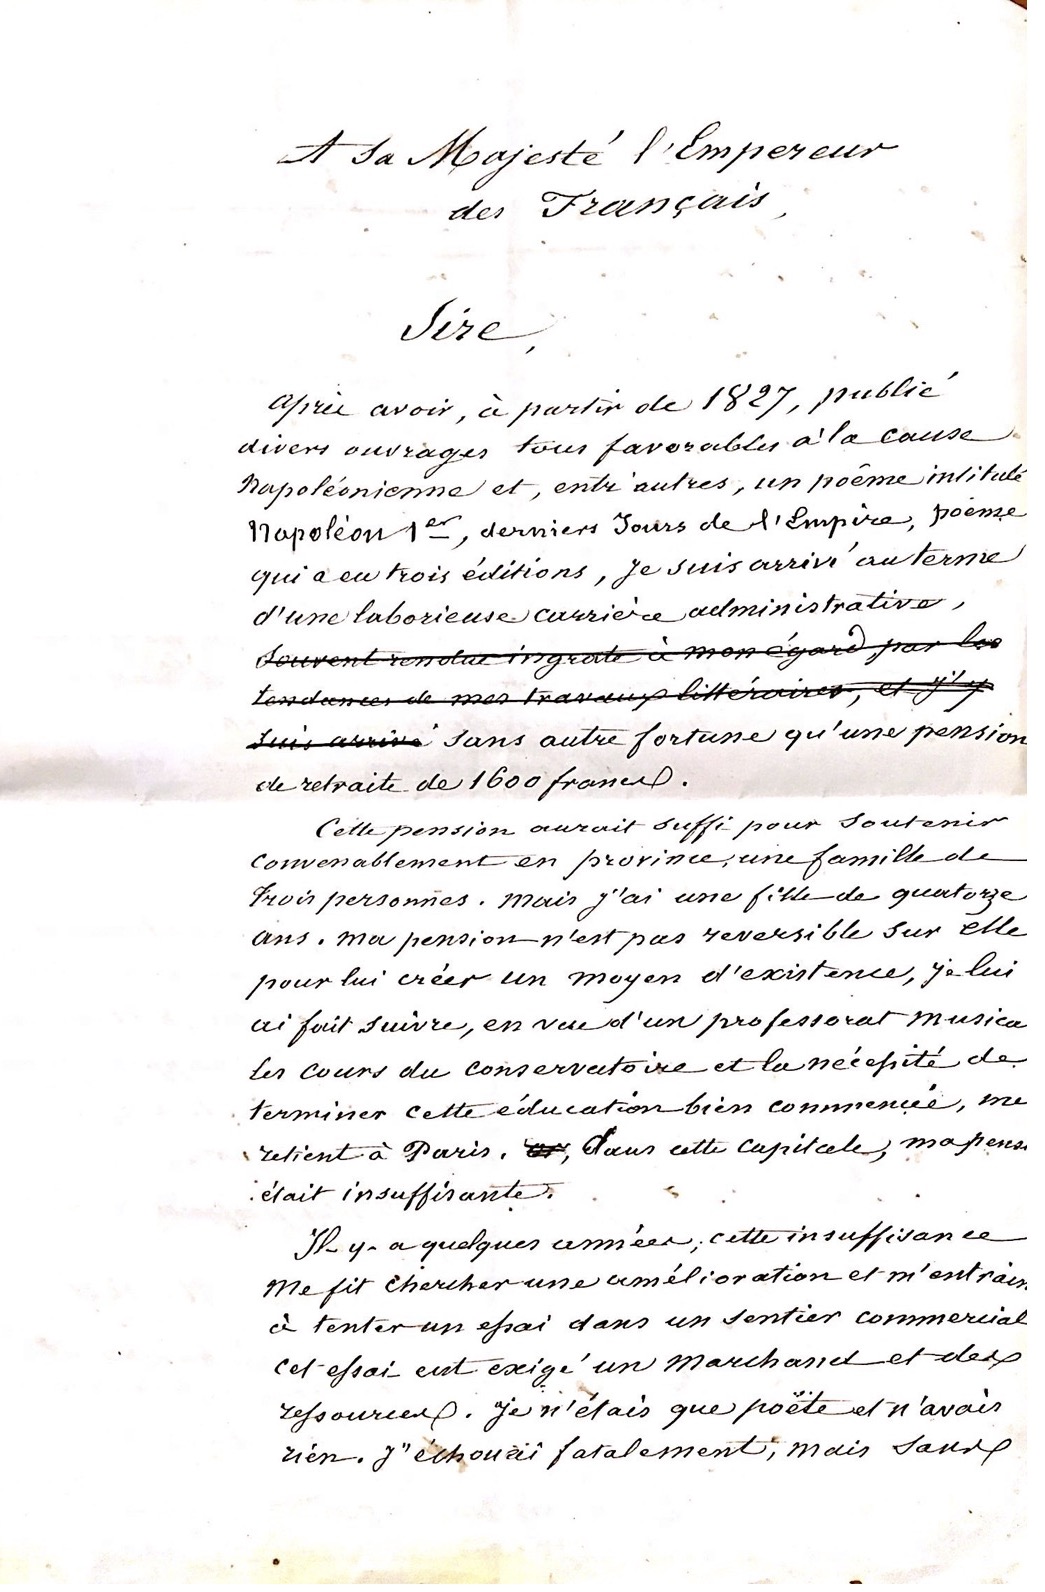 A Sa Majesté l'Empereur
des Français,
Sire,
après avoir, à partir de 1827, publié
divers ouvrages tous favorables à la cause
Napoléonienne et, entr'autres, un poême intitulé
Napoléon 1er, derniers Jours de l'Empire, poëme
qui a eu trois éditions, je suis arrivé au terme
d'une laborieuse carrière administrative,
souvent rendue ingrate à mon égard par les
tendances de mes travaux littéraires, et j'y
suis arrivé sans autre fortune qu'une pension
de retraite de 1600 francs.
Cette pension aurait suffi pour soutenir
convenablement en province, une famille de
trois personnes. Mais j'ai une fille de quatorze
ans. ma pension n'est pas reversible sur elle
pour lui créer un moyen d'existence, je lui
ai fait suivre, en vue d'un professorat musica
les cours du conservatoire et la nécessité de
terminer cette éducation bien commencée, me
retient à Paris. or, Dans cette capitale, ma pens
était insuffisante.
Il y a quelques années, cette insuffisance
me fit chercher une amélioration et m'entrain
à tenter un essai dans un sentier commercial
cet essai eut exigé un marchand et des
ressources. Je n'étais que poëte et n'avais
rien. J'échouai fatalement, mais sans